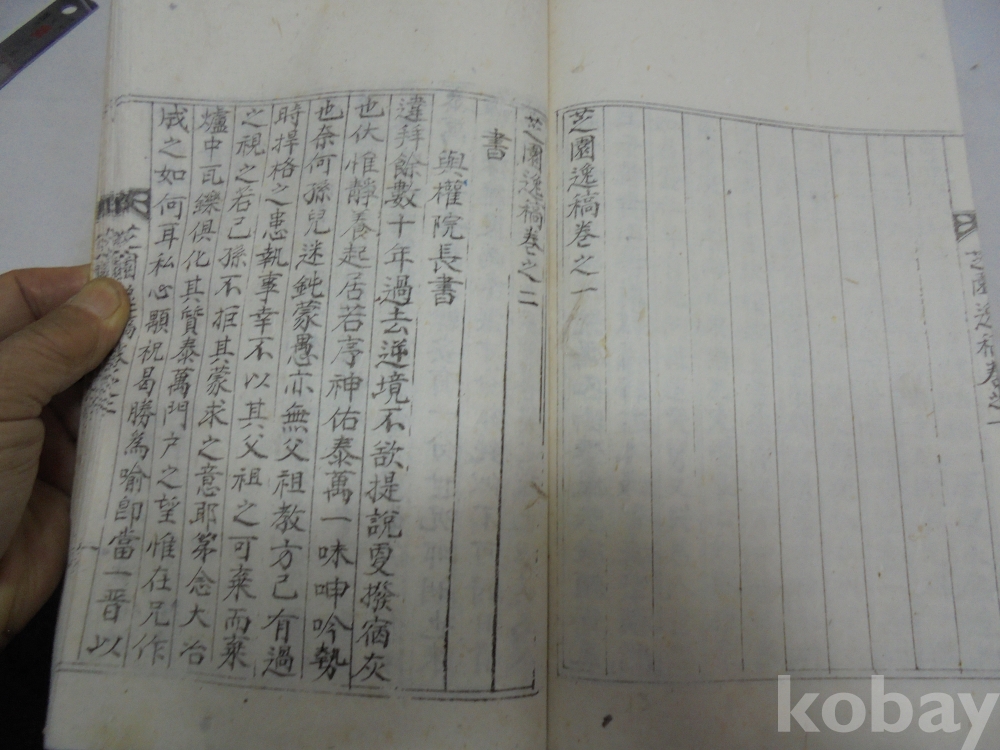 芝園逸稿卷之一
芝園逸稿卷之二
書
與權院長書
違拜餘數十年過去逆境不欲提說更撥宿灰
也伏惟靜養起居若序神佑泰萬一味呻吟勢
也奈何孫兒迷鈍蒙愚亦無父祖教方已有過
時捍格之患執事幸不以其父祖之可棄而棄
之視之若己孫不拒其蒙求之意耶第念大冶
爐中瓦礫俱化其質泰萬門户之望惟在兄作
成之如何耳私心顒祝曷勝為喻卽當一晋以
芝園逸稿卷之一
kobay